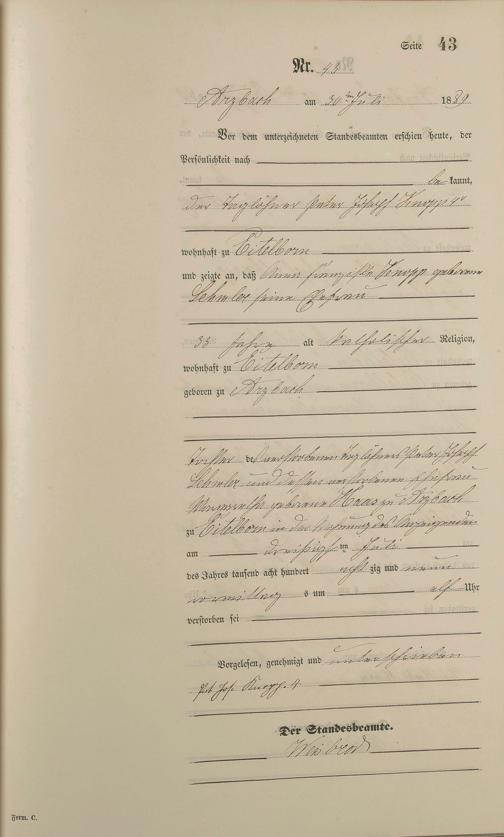 Seite 43
Nr. 43
Arzbach am 30ten Juli 1889
Vor dem unterzeichneten Standesbeamten erschien heute, der
Persönlichkeit nach
be kannt,
der Taglöhner Peter Joseph Knopp 4r
wohnhaft zu Eitelborn
und zeigte an, daß Anna Knopp geborene
Lehmler seine Ehefrau
35 Jahre alt katholischer Religion,
wohnhaft zu Eitelborn
geboren zu Arzbach
Tochter des verstorbenen Taglöhners Peter Joseph
Lehmler und dessen verstorbenen Ehefrau
Margarethe geborene Haas zu Arzbach
zu Eitelborn in der Wohnung des Anzeigenden
am dreißigsten Juli
des Jahres tausend acht hundert acht zig und neun
vormittags um elf Uhr
verstorben sei
Vorgelesen, genehmigt und unterschrieben
Pet Jos. Knopp. 4.
Der Standesbeamte.
Form. C.